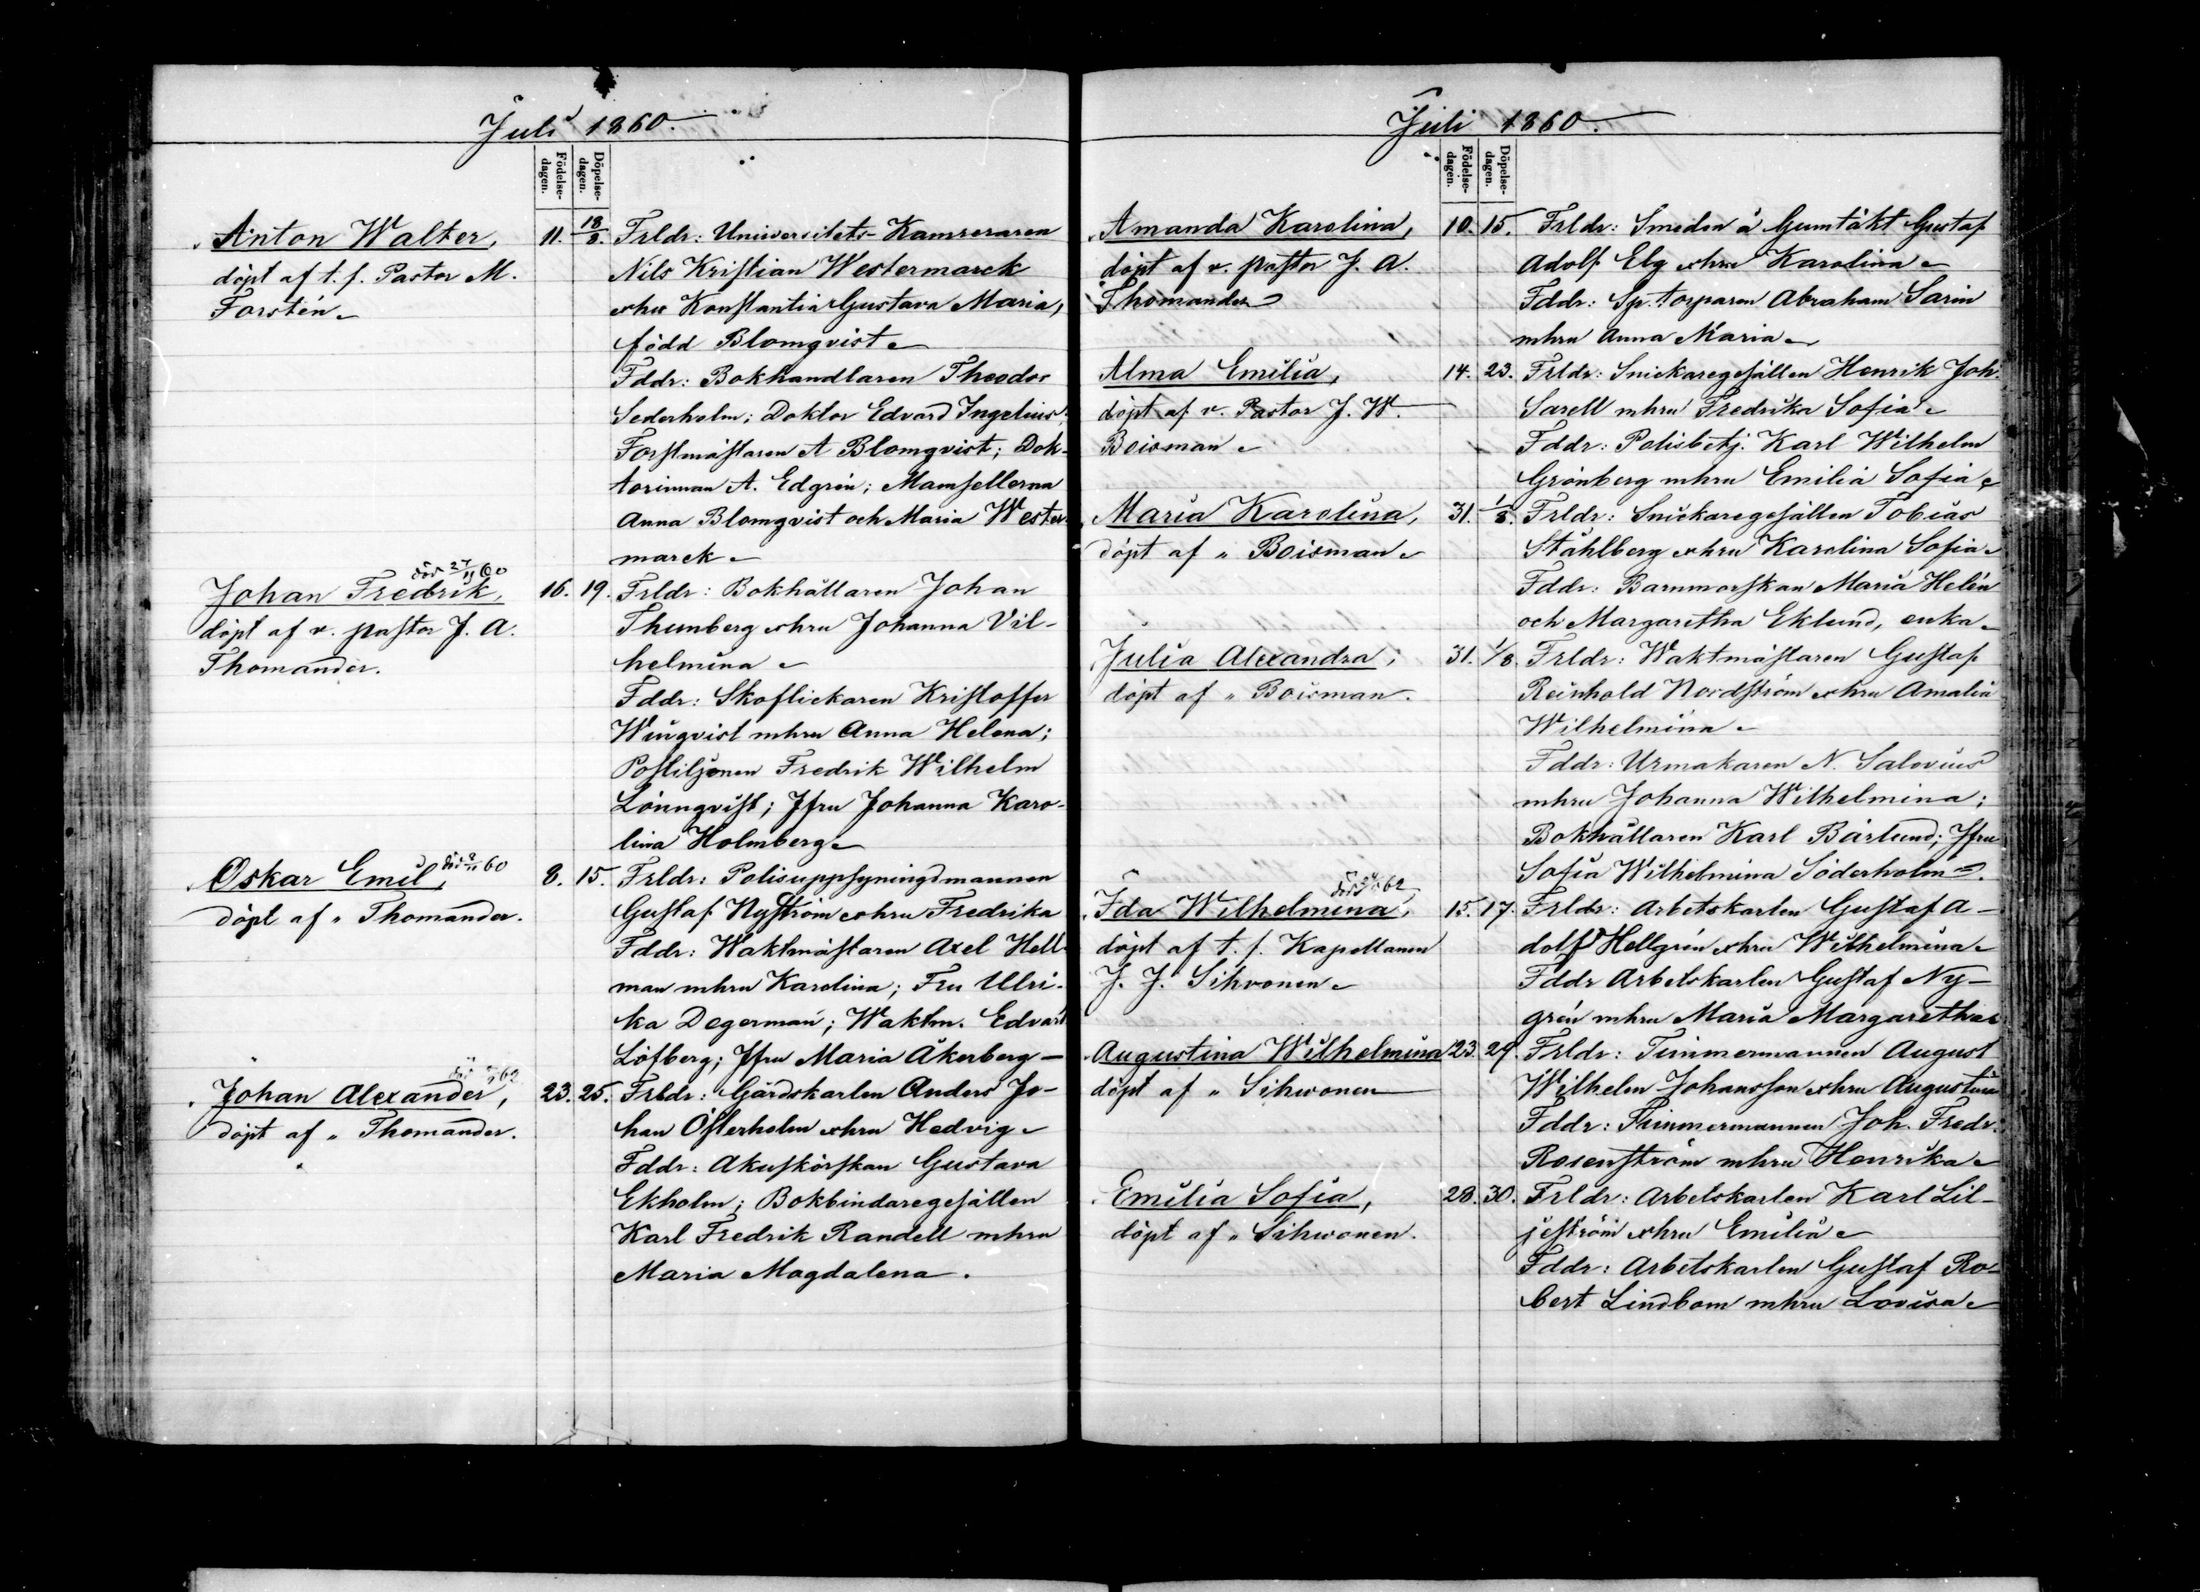 Juli 1860.
Födelse-dagen.
Döpelse-dagen.
Anton Walter,
döpt af t. f. Pastor M.
Forstén
11. 18/8.
Frldr: Universitets-Kamreraren
Nils Kristian Westermarck
o hu Konstantia Gustava Maria,
född Blomqvist
Fddr: Bokhandlaren Theodor
Sederholm; Doktor Edvard Ingelius;
Forstmästaren A Blomqvist; Dok-
torinnan A. Edgrén; Mamsellerna
Anna Blomqvist och Maria Wester-
marck
död 27/11 60
Johan Fredrik,
döpt af v. pastor J. A.
Thomander.
16. 19.
Frldr: Bokhållaren Johan
Thunberg o hru Johanna Vil-
helmina
Fddr: Skoflickaren Kristoffer
Winqvist mhru Anna Helena;
Postiljonen Fredrik Wilhelm
Lönnqvist; Jfru Johanna Karo-
lina Holmberg
Oskar Emil,
döpt af " Thomander.
8. 15.
Frldr: Polisuppsyningsmannen
Gustaf Nyström o hru Fredrika
Fddr: Waktmästaren Axel Hell-
man mhru Karolina; Fru Ulri-
ka Degerman; Waktm. Edvard
Löfberg; Jfru Maria Åkerberg
Johan Alexander,
döpt af " Thomander.
23. 25.
Frldr: Gårdskarlen Anders Jo-
han Österholm o hru Hedvig
Fddr: Akuskörskan Gustava
Ekholm; Bokbindaregesällen
Karl Fredrik Randell mhru
Maria Magdalena.
Juli 1860.
Födelse-dagen.
Döpelse-dagen.
Amanda Karolina,
döpt af v. pastor J. A.
Thomander
10. 15.
Frldr: Smeden å Gumtäkt Gustaf
Adolf Elg o hru Karolina
Fddr: Sp. torparen Abraham Sarin
mhru Anna Maria
Alma Emilia,
döpt af v. Pastor J. W.
Boisman
14. 23.
Frldr: Snickaregesällen Henrik Joh.
Sarell mhru Fredrika Sofia
Fddr: Polisbetj. Karl Wilhelm
Grönberg mhru Emilia Sofia
Maria Karolina,
döpt af " Boisman
31. 1/8.
Frldr: Snickaregesällen Tobias
Ståhlberg o hru Karolina Sofia
Fddr: Barnmorskan Maria Helén
och Margaretha Eklund, enka
Julia Alexandra,
döpt af " Boisman.
31. 1/8.
Frldr: Waktmästaren Gustaf
Reinhold Nordström o hru Amalia
Wilhelmina
Fddr: Urmakaren N. Salovius
mhru Johanna Wilhelmina;
Bokhållaren Karl Bärlund; Jfru
Sofia Wilhelmina Söderholm.
Ida Wilhelmina,
döpt af t. f. Kapellanen
J. J. Sihvonen
15. 17.
Frldr: Arbetskarlen Gustaf A-
dolf Hellgrén o hru Wilhelmina
Fddr Arbetskarlen Gustaf Ny-
grén mhru Maria Margaretha
Augustina Wilhelmina
döpt af " Sihwonen
23. 29.
Frldr: Timmermannen August
Wilhelm Johansson o hru Augustina
Fddr: Timmermannen Joh. Fredr.
Rosenström mhru Henrika
Emilia Sofia,
döpt af " Sihwonen.
28. 30.
Frldr: Arbetskarlen Karl Lil-
jeström o hru Emilia
Fddr: Arbetskarlen Gustaf Ro-
bert Lindbom mhru Lovisa